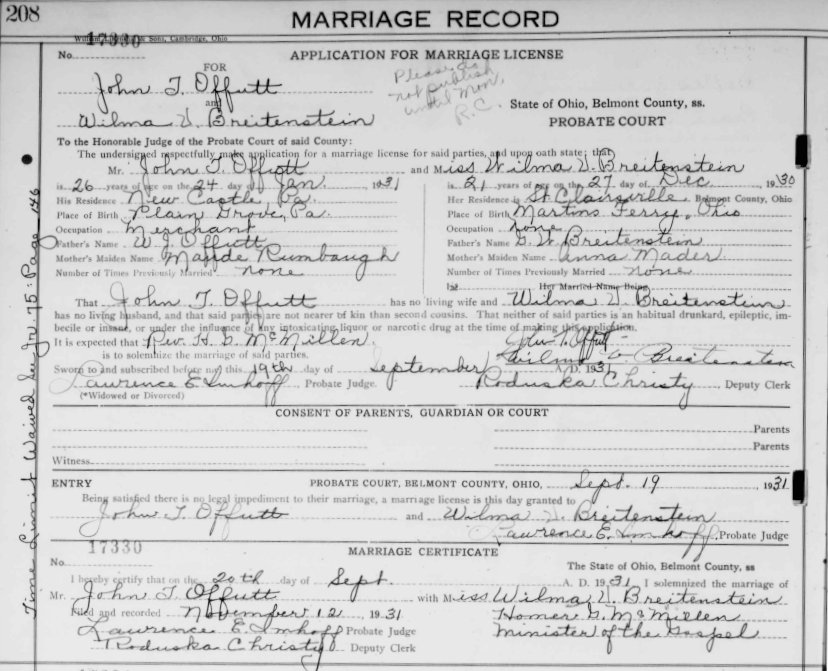 208
MARRIAGE RECORD
& Sons, Cambridge, Ohio
No. 17330
APPLICATION FOR MARRIAGE LICENSE
FOR
John T. Offutt
and
Wilma V. Breitenstein
Please do
not publish
until Mon.
R.C.
State of Ohio, Belmont County, ss.
PROBATE COURT
To the Honorable Judge of the Probate Court of said County:
The undersigned respectfully make application for a marriage license for said parties, and upon oath state; that
Mr. John T. Offutt and Miss Wilma V. Breitenstein
is 26 years of age on the 24 day of Jan. 1931 is 21 years of age on the 27 day of Dec 1930
His Residence New Castle, Pa. Her Residence is St. Clairsville Belmont County, Ohio
Place of Birth Plain Grove, Pa. Place of Birth Martins Ferry, Ohio
Occupation Merchant Occupation none
Father's Name W. J. Offutt Father's Name G. W. Breitenstein
Mother's Maiden Name Maude Rumbaugh Mother's Maiden Name Anna Mader
Number of Times Previously Married none Number of Times Previously Married none
Her Married Name Being
That John T. Offutt has no living wife and Wilma V. Breitenstein
has no living husband, and that said parties are not nearer of kin than second cousins. That neither of said parties is an habitual drunkard, epileptic, im-
becile or insane, or under the influence of any intoxicating liquor or narcotic drug at the time of making this application.
It is expected that Rev. H. G. McMillen. John T. Offutt
is to solemnize the marriage of said parties. Wilma V. Breitenstein
Sworn to and subscribed before me this 19th day of September A. D. 1931
Lawrence E. Imhoff Probate Judge. Roduska Christy, Deputy Clerk
(*Widowed or Divorced)
CONSENT OF PARENTS, GUARDIAN OR COURT
Parents
Parents
Witness
ENTRY PROBATE COURT, BELMONT COUNTY, OHIO, Sept. 19 1931
Being satisfied there is no legal impediment to their marriage, a marriage license is this day granted to
John T. Offutt and Wilma V. Breitenstein
Lawrence E. Imhoff, Probate Judge
No. 17330
MARRIAGE CERTIFICATE
The State of Ohio, Belmont County, ss
I hereby certify that on the 20th day of Sept. A. D. 1931, I solemnized the marriage of
Mr. John T. Offutt with Miss Wilma V. Breitenstein
Filed and recorded November 12, 1931 Homer G. McMillen
Lawrence E. Imhoff Probate Judge Minister of the Gospel
Roduska Christy Deputy Clerk
Time Limit Waived See Jn. 75. Page 146